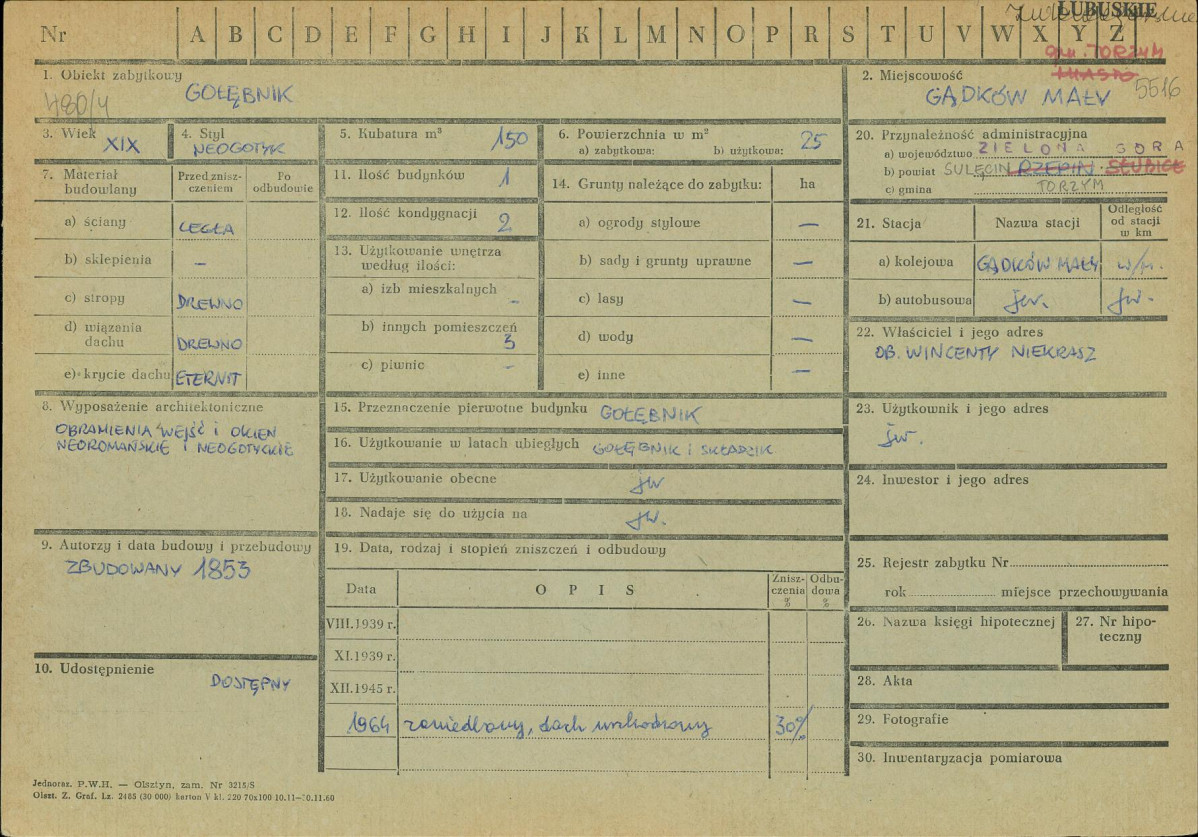 LUBUSKIE
Nr A B C D E F G H I J K L M N O P R S T U V W X Y Z
gm. TORZYM
MIASTO
1. Obiekt zabytkowy
480/4 GOŁĘBNIK
2. Miejscowość
GĄDKÓW MAŁY 5516
3. Wiek
XIX
4. Styl
NEOGOTYK
5. Kubatura m³
150
6. Powierzchnia w m²
a) zabytkowa: b) użytkowa: 25
20. Przynależność administracyjna
a) województwo ZIELONA GÓRA
b) powiat SULĘCIN RZEPIN SŁUBICE
c) gmina TORZYM
7. Materiał
budowlany
Przed znisz-
czeniem
Po
odbudowie
a) ściany CEGŁA
b) sklepienia –
c) stropy DREWNO
d) wiązania
dachu DREWNO
e) krycie dachu ETERNIT
11. Ilość budynków 1
12. Ilość kondygnacji 2
13. Użytkowanie wnętrza
według ilości:
a) izb mieszkalnych –
b) innych pomieszczeń
3
c) piwnic –
14. Grunty należące do zabytku: ha
a) ogrody stylowe —
b) sady i grunty uprawne —
c) lasy —
d) wody —
e) inne —
21. Stacja Nazwa stacji
Odległość
od stacji
w km
a) kolejowa GĄDKÓW MAŁY w/m.
b) autobusowa jw. jw.
22. Właściciel i jego adres
OB. WINCENTY NIEKRASZ
8. Wyposażenie architektoniczne
OBRAMIENIA WEJŚĆ i OKIEN
NEOROMAŃSKIE i NEOGOTYCKIE
15. Przeznaczenie pierwotne budynku GOŁĘBNIK
16. Użytkowanie w latach ubiegłych GOŁĘBNIK i SKŁADZIK
17. Użytkowanie obecne jw
18. Nadaje się do użycia na jw.
23. Użytkownik i jego adres
jw.
24. Inwestor i jego adres
9. Autorzy i data budowy i przebudowy
ZBUDOWANY 1853
10. Udostępnienie
DOSTĘPNY
19. Data, rodzaj i stopień zniszczeń i odbudowy
Data OPIS
Znisz-
czenia
%
Odbu-
dowa
%
VIII.1939 r.
XI.1939 r.
XII.1945 r.
1964 zaniedbany, dach uszkodzony 30%
25. Rejestr zabytku Nr
rok miejsce przechowywania
26. Nazwa księgi hipotecznej
27. Nr hipo-
teczny
28. Akta
29. Fotografie
30. Inwentaryzacja pomiarowa
Jednoraz. P.W.H. — Olsztyn, zam. Nr 3215/S
Olszt. Z. Graf. Lz. 2485 (30 000) karton V kl. 220 70x100 10.11—30.11.60